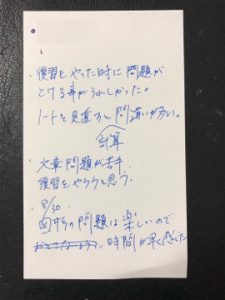 復習をやった時に問題が
とける事がうれしかった。
ノートを見直すと問違いが多い。
計算
文章問題が苦手
復習をやろうと思う。
8/30.
図形の問題は楽しいので
時間が早く感じた